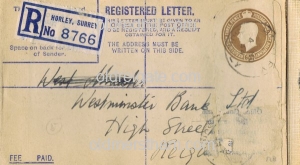 REGISTERED LETTER.
THIS LETTER MUST BE GIVEN TO AN
OFFICER OF THE POST OFFICE
TO BE REGISTERED, AND A RECEIPT
OBTAINED FOR IT.
THE ADDRESS MUST BE WRITTEN
ON THIS SIDE.
R
HORLEY, SURREY
No 8766
of Sender.
West
Westminster Bank Ltd
High Street
Reiga
FEE PAID.